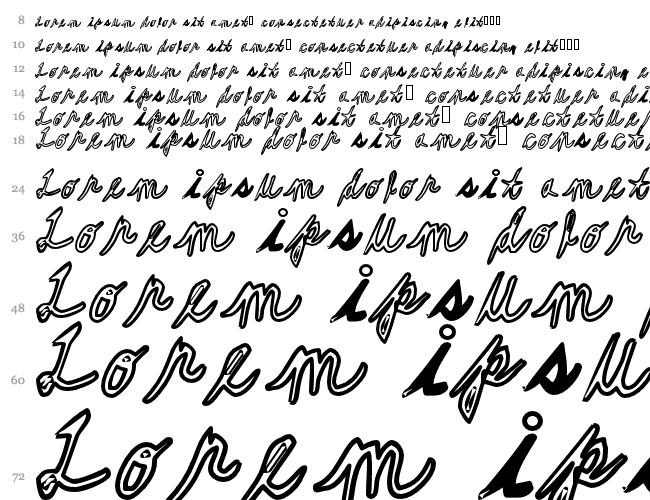 8 Lorem ipsum dolor sit amet▯ consectetuer adipiscing elit▯▯▯
10 Lorem ipsum dolor sit amet▯ consectetuer adipiscing elit▯▯▯
12 Lorem ipsum dolor sit amet▯ consectetuer adipiscing e
14 Lorem ipsum dolor sit amet▯ consectetuer adi
16 Lorem ipsum dolor sit amet▯ consectetuer
18 Lorem ipsum dolor sit amet▯ consect
24 Lorem ipsum dolor sit amet
36 Lorem ipsum dolor
48 Lorem ipsum
60 Lorem ipsu
72 Lorem ips